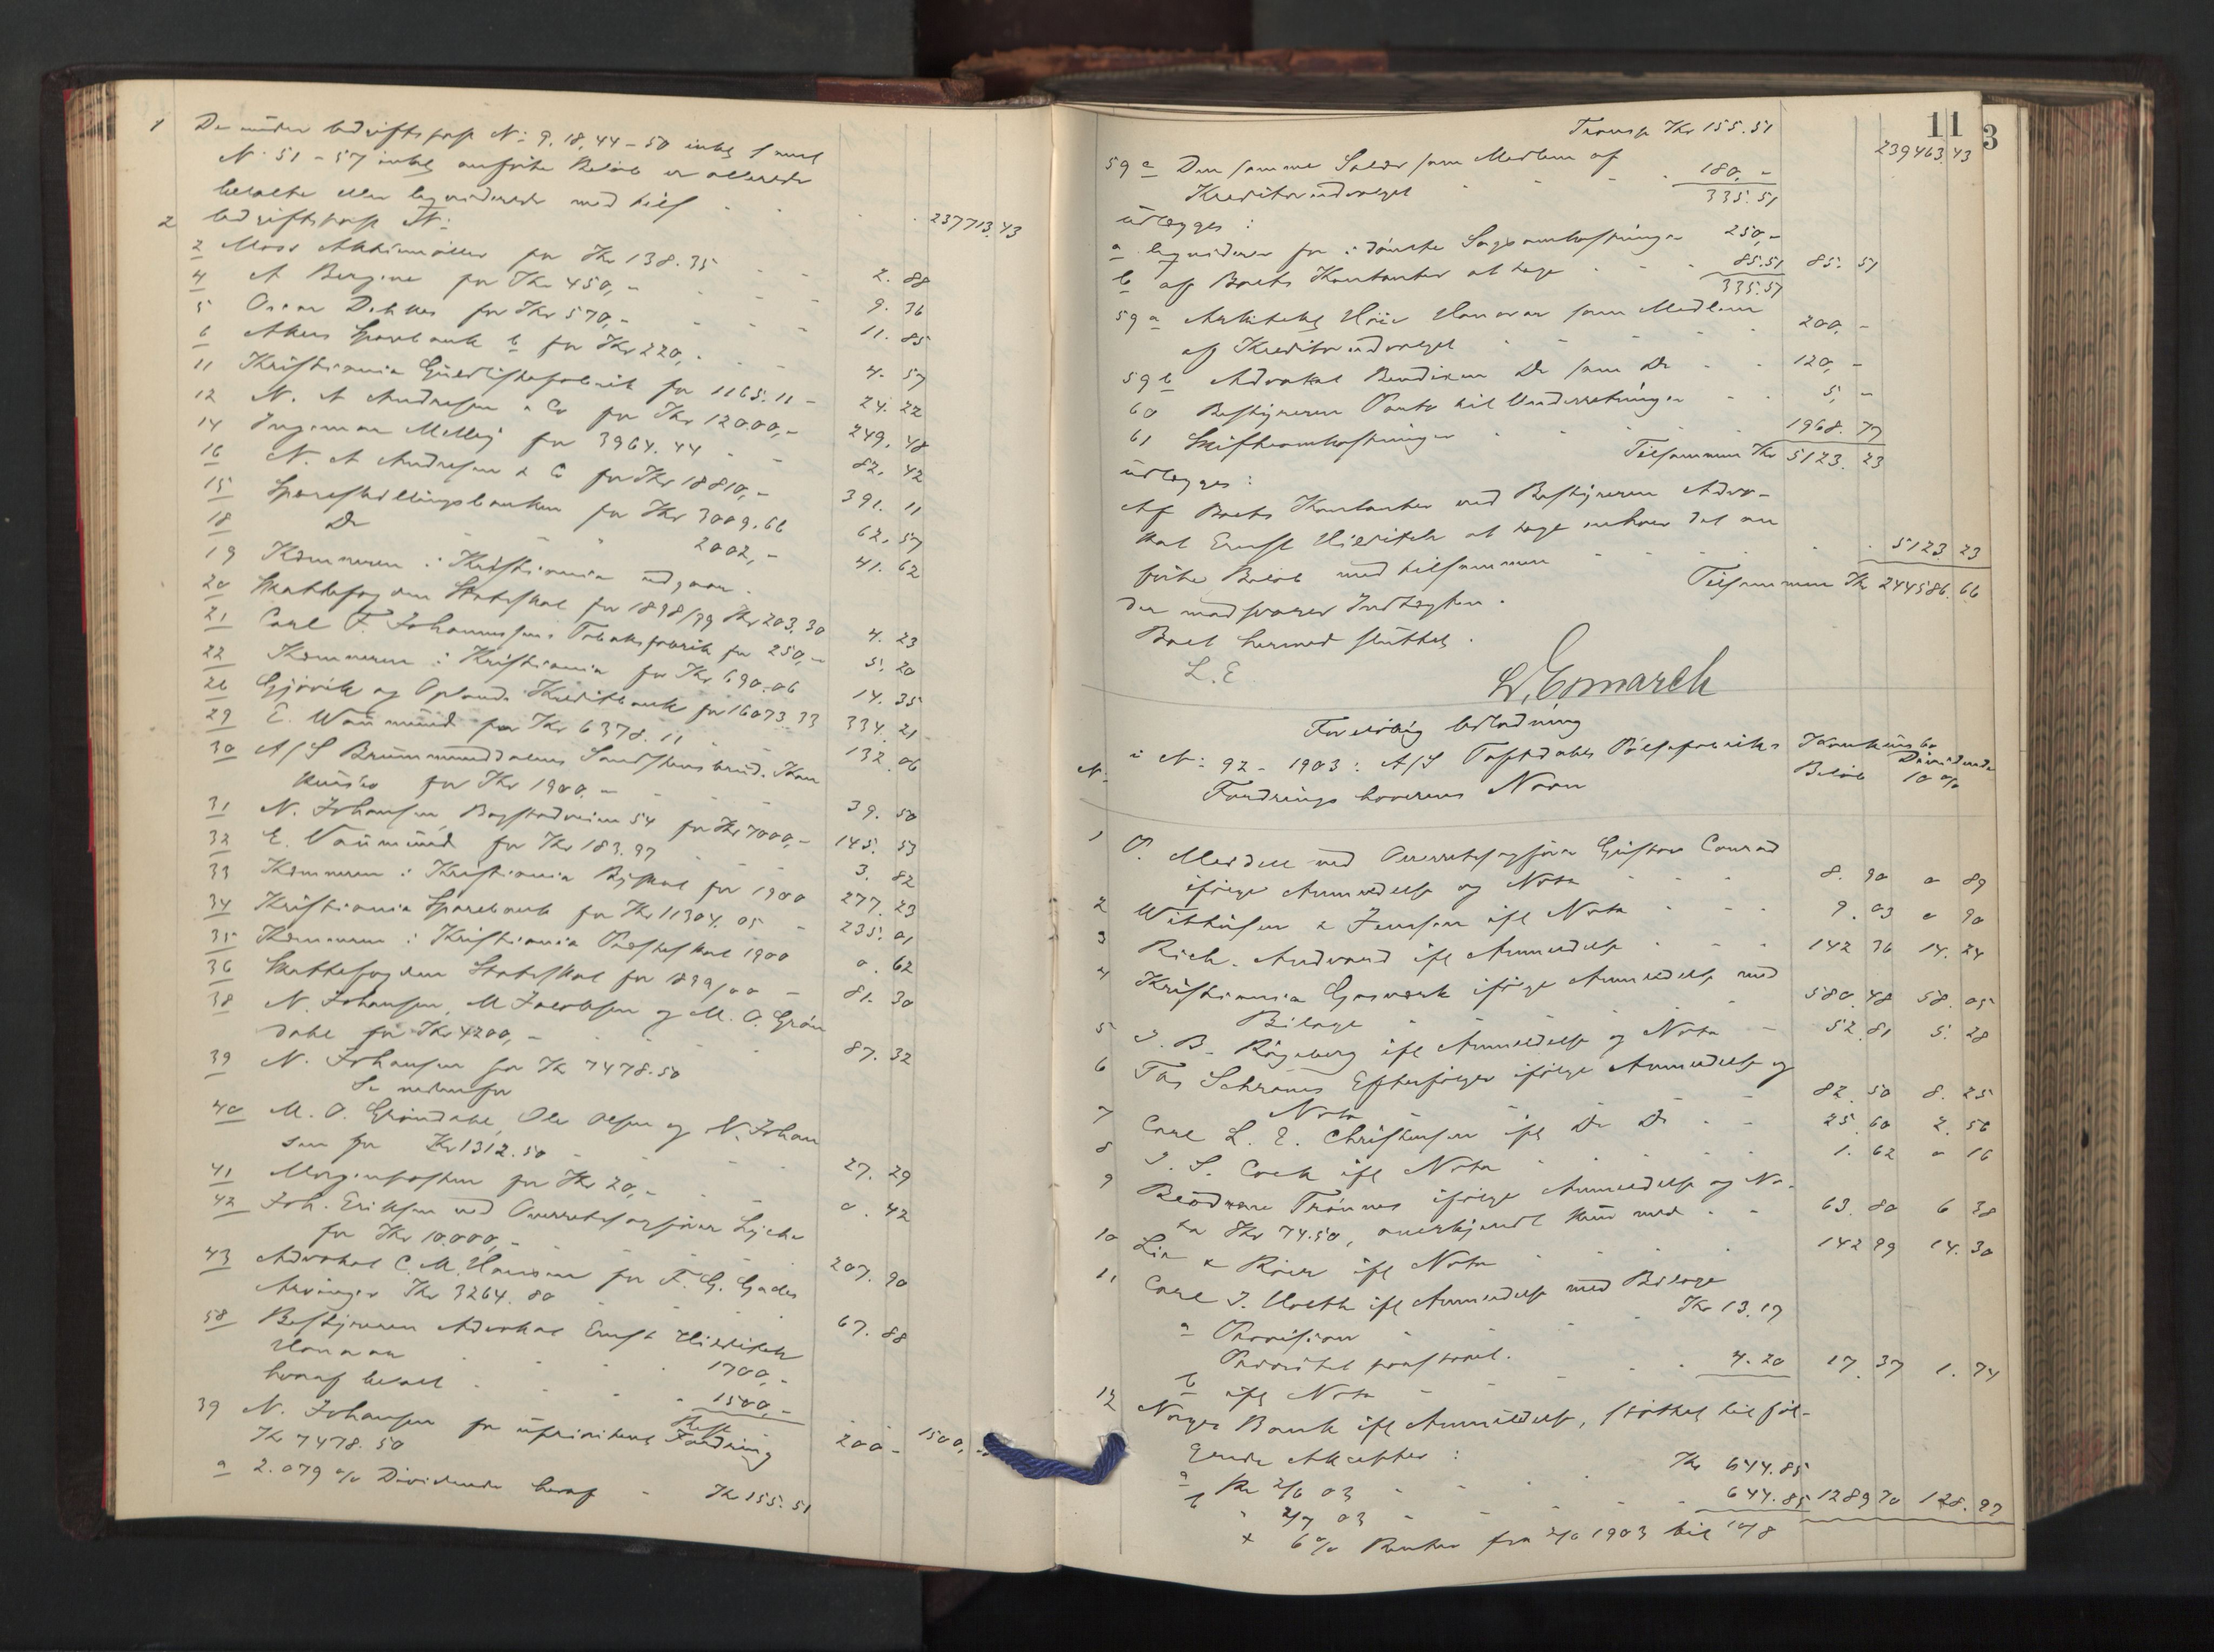 1 De under bedriftspost N: 9, 18, 44 – 50 inkl samt
N: 51 – 57 inkl anførte Beløb er allerede
betalte eller likviderede med tils 237713.43
2 bedriftspost N:
2 Moss Aktiemøller for Kr 138.35 2.88
4 A Bergene for Kr 450,- 9.36
5 Oscar for Kr 570,- 11.85
6 Akers Sparebank b for Kr 220,- 4.57
11 Kristiania Guldlistefabrik for 1165.11 – 24.22
12 N. A Andresen & Co for Kr 12000,- 249.48
14 Ingeniør for 3964.44 82.42
16 N. A Andresen & Co for Kr 18810,- 391.11
15 Spareskillingsbanken for Kr 3009.66 62.57
18 Do 2002,- 41.62
19 Kæmneren i Kristiania udgaar.
20 Skattefogden Statsskat for 1898/99 Kr 203.30 4.23
21 Carl F. Johannessens Tobaksfabrik for 250,- 5.20
22 Kæmneren i Kristiania for Kr 690.06 14.35
26 Gjøvik og Oplands Kreditbank for 16073.33 334.21
29 E. Waummund for Kr 6378.11 132.06
30 A/S Brummunddalens Sandstensbrud. Kon
kursbo for Kr 1900,- 39.50
31 N. Johansen, Bogstadveien 54 for Kr 7000,- 145.53
32 E. Vaummund for Kr 183.97 3.82
33 Kæmneren i Kristiania Byskat for 1900 277.23
34 Kristiania Sparebank for Kr 11304.05 235.01
35 Kæmneren i Kristiania Præsteskat 1900 0.62
36 Skattefogden Statsskat for 1899/00 – 81.30
38 N. Johansen, M Jacobsen og M. O. Grøn
dahl for Kr 4200,- 87.32
39 N. Johansen for Kr 7478.50
Se nedenfor
40 M. O. Grøndahl, Ole Olsen og N. Johan
sen for Kr 1312.50 27.29
41 Morgenposten for Kr 20,- 0.42
42 Joh. Eriksen ved Overretssagfører Lycke
for Kr 10.000,- 207.90
43 Advokat C. M. Hansson for F. G. Gades
Arvinger Kr 3264.80 67.88
58 Bestyreren Advokat Ernst
Honorar 1700,-
hvoraf betalt 1500,- 1500,-
Rest 200 –
39 N. Johansen for uprioritert Fordring
Kr 7478.50
a 2.079 % Dividende heraf Kr 155.51
11
3
Transp Kr 155.51 239463.43
59 c Den samme Salær som Medlem af
Kreditorudvalget 180,-
335.51
udlægges:
a likviderer for idømte Sagsomkostninger 250,-
b af Boets Kontanter at tage 85.51 85.51
335.51
59 a Arkitekt Honorar som Medlem
af Kreditorudvalget 200,-
59 b Advokat Bendixen Do som Do 120,-
60 Bestyreren Porto til Underretninger 5,-
61 Skifteomkostninger 1968.77
Tilsammen Kr 5123.23
udlægges:
Af Boets Kontanter ved Bestyreren Advo-
kat Ernst at tage enhver det an
førte Beløb med tilsammen 5123.23
Tilsammen Kr 244586.66
der modsvarer Indtægten.
Boet hermed sluttet.
L. E
L. Esmarch
Foreløbig Udlodning
i N: 92 – 1903: A/S Pølsefabriks Konkursbo
N. Fordringshaverens Navn Beløb Dividende 10 %
1 O. ved Overretssagfører Gustav Conrad
ifølge Anmeldelse og Nota 8.90 0 89
2 Witthusen & Jensen ifl Nota 9.03 0 90
3 Rich. Andvord ifl Anmeldelse 142 36 14.24
4 Kristiania Gasværk ifølge Anmeldelse med
Bilage 580.48 58.05
5 I. B. Rygeberg ifl Anmeldelse og Nota – 52.81 5.28
6 Ths Schrams Efterfølger ifølge Anmeldelse og
Nota 82.50 8.25
7 Carl L. E. Christensen ifl Do Do 25.60 2.56
8 J. S. Cock ifl Nota 1.62 0 16
9 Brødrene Trønnes ifølge Anmeldelse og No-
ta Kr 74.50, anerkjendt kun med 63.80 6 38
10 Lie & Röer ifl Nota 142 99 14.30
11 Carl J. ifl Anmeldelse med Bilage
a Provision Kr 13.17
b ifl Nota 4.20 17.37 1.74
12 Norges Bank ifl Anmeldelse, støttet til føl-
gende Akcepter:
a Pr 2/6 03 Kr 644.85
b " 2/7 03 644.85 1289 70 128.97
+ 6 % Renter fra 2/6 1903 til 10/8